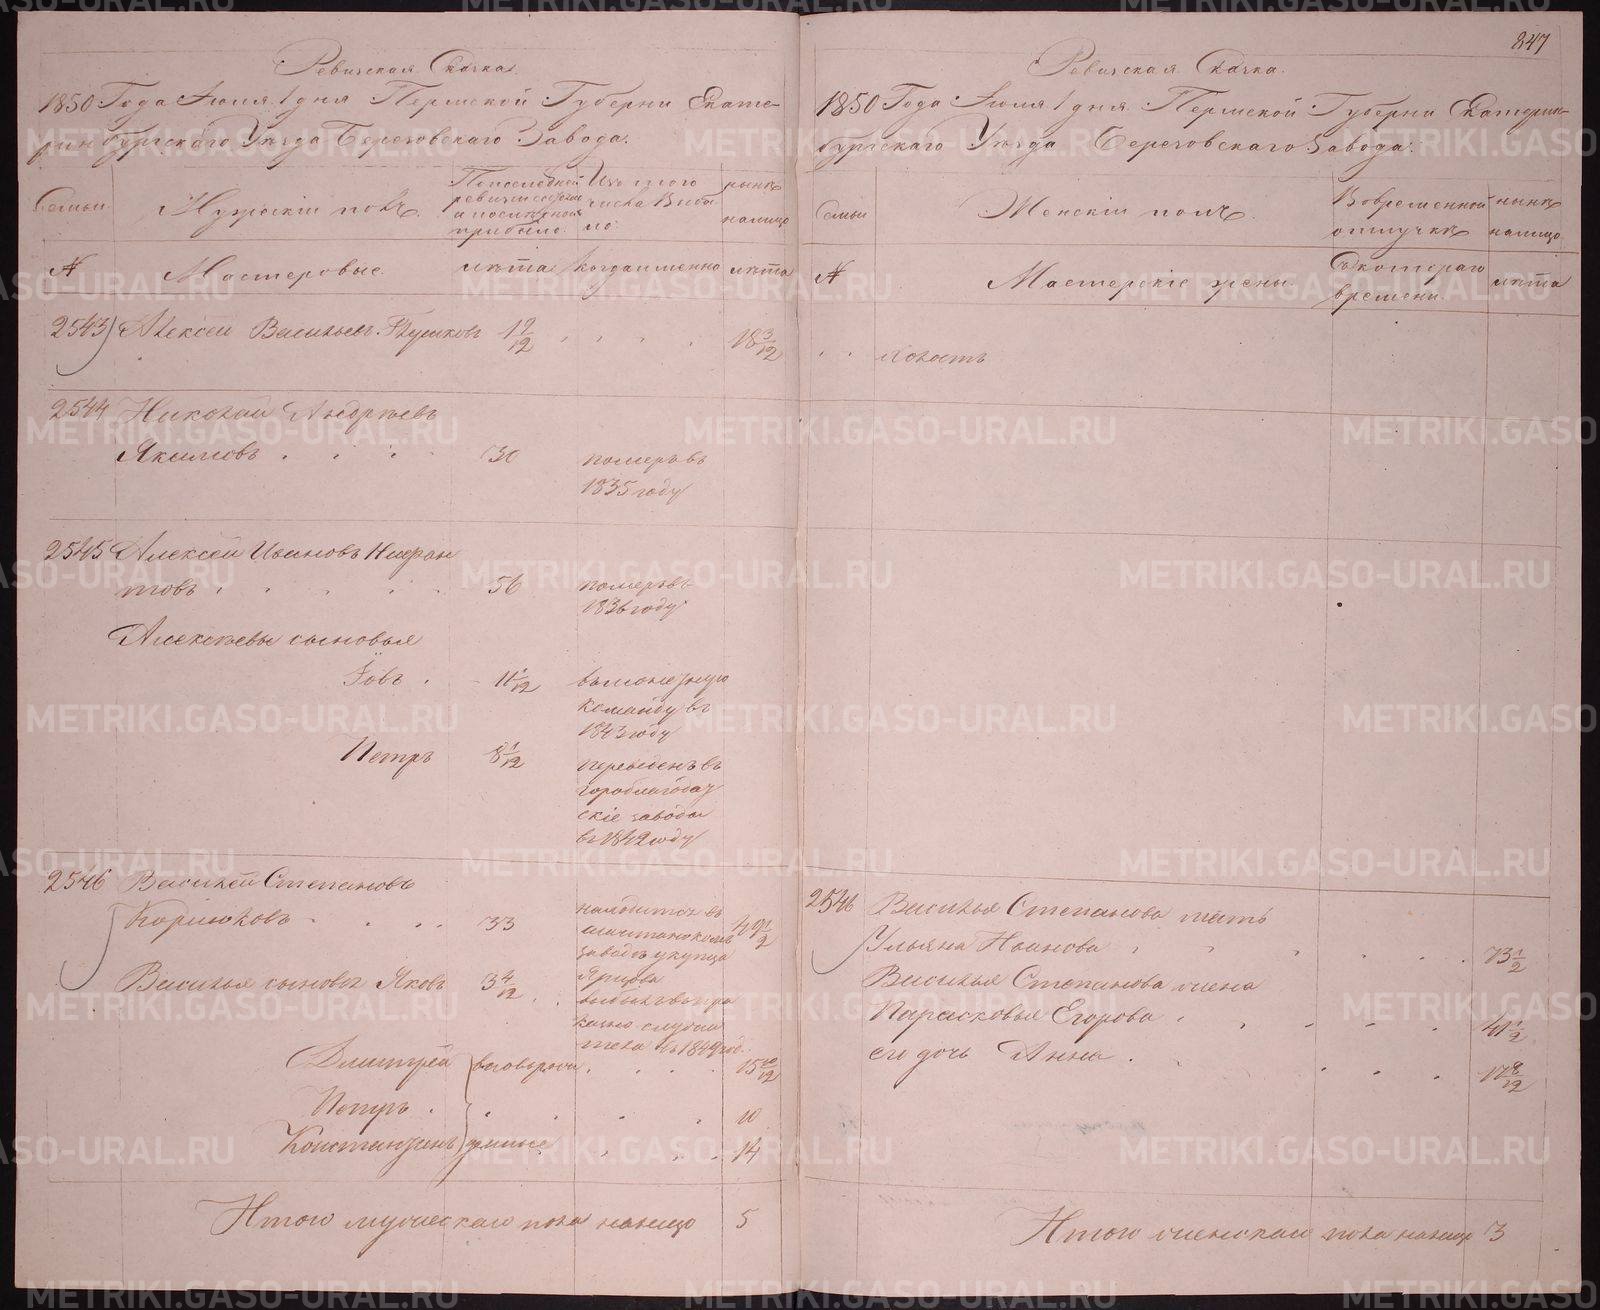 Ревизская Сказка.
1850 Года Июля 1 дня Пермской Губерни Екате-
ринбургскаго Уезда Березовскаго Завода.
Семьи
Мужскiй полъ.
По последней
ревизии состояло
и после оной
прибыло.
Изъ того
числа Выбы
ло.
ныне
налицо
№
Мастеровые.
лѣта
когда именно
лѣта
2543
Алексей Васильевъ
1 9/12
18 3/12
2544
Николай Андреевъ
Якимовъ
30
померъ въ
1835 году
2545
Алексей Ивановъ
товъ
56
померъ въ
1836 году
Алексеевы сыновья
Iовъ
11 1/12
въ монетную
команду въ
1843 году
Петръ
8 1/12
въ
Гороблагодат
скiе заводы
въ 1842 году
2546
Василей Степановъ
Корюковъ
33
находится въ
заводе у купца
49 1/2
Василья сыновья Яковъ
3 4/12
въ 1849 год.
Дмитрей
15 10/12
Петръ
10
Константинъ
14
Итого мужескаго пола налицо 5
847
Ревизская Сказка.
1850 Года Июля 1 дня Пермской Губерни Екатерин-
бургскаго Уезда Березовскаго Завода.
Семьи
Женскiй полъ.
Во временной
отлучке
ныне
налицо
№
Мастерскiе жены
Съ котораго
времени
лѣта
холостъ
2546
Василья Степанова мать
Ульяна Иванова
73 1/2
Василья Степанова жена
Парасковья Егорова
41 1/2
его дочь Анна
17 8/12
Итого женскаго пола налицо 3
METRIKI.GASO-URAL.RU